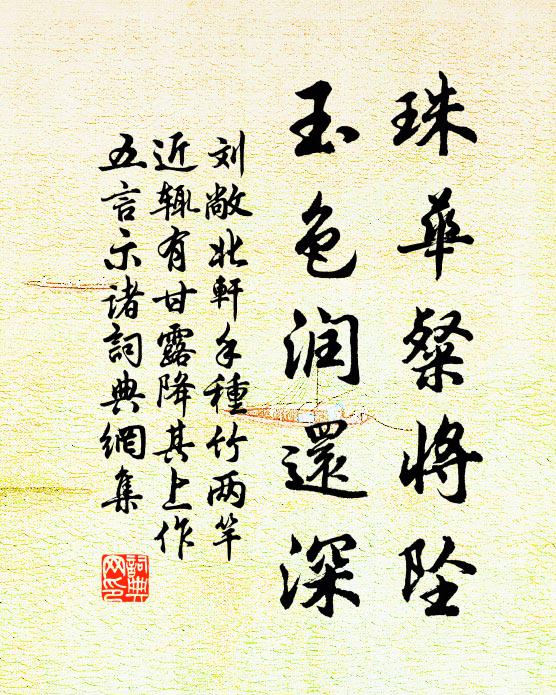 珠華粲將坠
玉色润還深
刘敞北軒手種竹两竿
近辄有甘露降其上作
五言示诸詞典網集
詞典网印